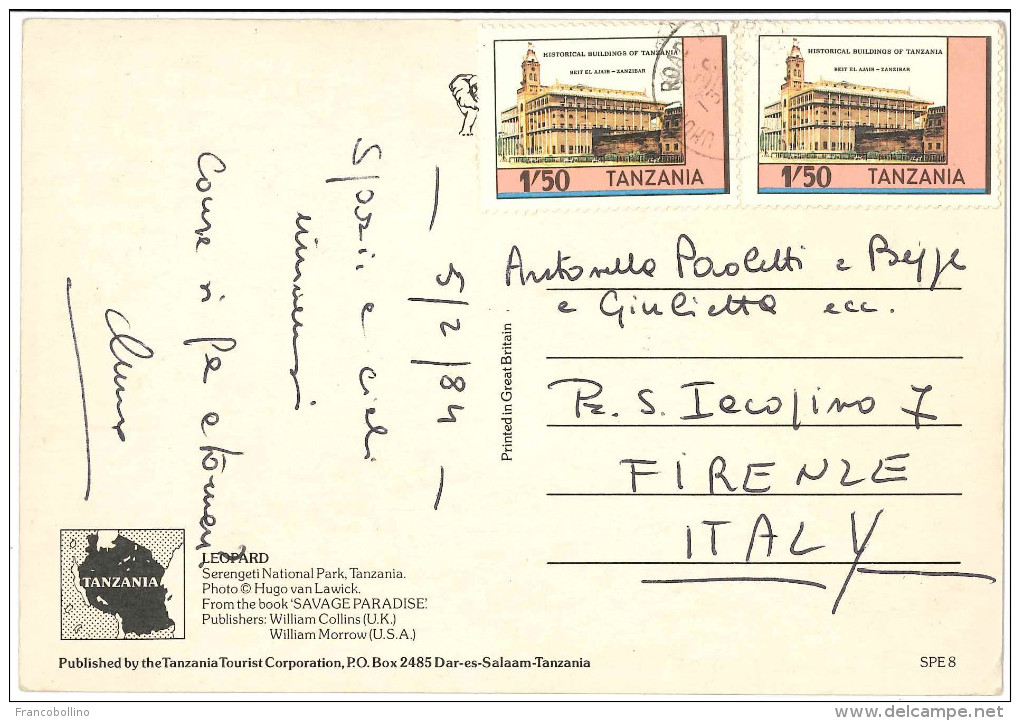 HISTORICAL BUILDINGS OF TANZANIA
BEIT EL AJAIB – ZANZIBAR
1'50 TANZANIA
HISTORICAL BUILDINGS OF TANZANIA
BEIT EL AJAIB – ZANZIBAR
1'50 TANZANIA
ROAD
— 5/2/84 —
Spazi e cieli
immensi
Come si fa a tornare?
Antonella Paoletti e Beppe
e Giulietta ecc.
Pz. S. Iacopino 7
FIRENZE
ITALY
Printed in Great Britain
TANZANIA
LEOPARD
Serengeti National Park, Tanzania.
Photo © Hugo van Lawick.
From the book 'SAVAGE PARADISE'.
Publishers: William Collins (U.K.)
William Morrow (U.S.A.)
Published by the Tanzania Tourist Corporation, P.O. Box 2485 Dar-es-Salaam-Tanzania
SPE 8
Francobollino
delcampe.net